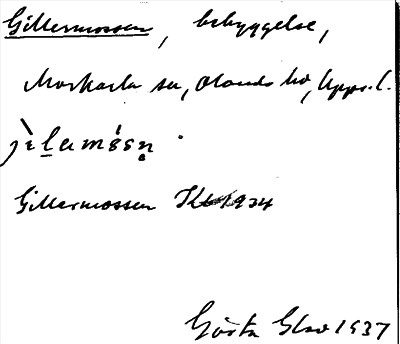 Gillermossen, bebyggelse,
Morkarla sn, Olands hd, Upps. l.
Gillermossen Kbl 1934
Gösta Glad 1937